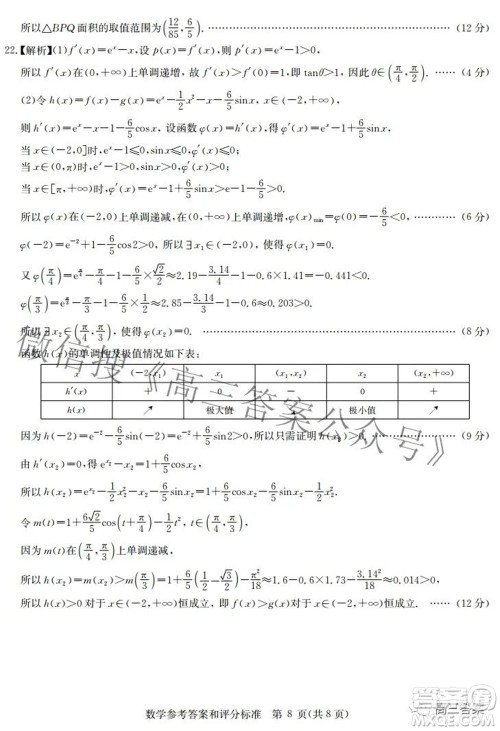 所以△BPQ 面积的取值范围为(12/85, 6/5). …… (12 分)
22.【解析】(1)f′(x)=eˣ-x,设 p(x)=f′(x),则 p′(x)=eˣ-1,
所以 f′(x)在(0,+∞)上单调递增,故 f′(x)>f′(0)=1,即 tanθ>1,因此 θ∈(π/4, π/2). …… (4 分)
(2)令 h(x)=f(x)-g(x)=eˣ-1/2x²-x-6/5sinx,x∈(-2,+∞),
则 h′(x)=eˣ-x-1-6/5cosx,设函数 φ(x)=h′(x),则 φ′(x)=eˣ-1+6/5sinx.
当 x∈(-2,0]时,eˣ-1≤0,6/5sinx≤0,φ′(x)≤0;
当 x∈(0,π)时,eˣ-1>0,6/5sinx>0,φ′(x)>0;
当 x∈[π,+∞)时,φ′(x)=eˣ-1+6/5sinx>0.
所以 φ(x)在(-2,0)上单调递减,在(0,+∞)上单调递增,φ(x)min=φ(0)=-6/5<0, …… (6 分)
φ(-2)=e⁻²+1-6/5cos2>0,所以∃x₁∈(-2,0),使得 φ(x₁)=0.
又 φ(π/4)=e^(π/4)-π/4-1-6/5×√2/2≈2.19-3.14/4-1-0.6×1.41=-0.441<0,
φ(π/3)=e^(π/3)-π/3-1-6/5×1/2≈2.85-3.14/3-1-0.6≈0.203>0,
所以∃x₂∈(π/4, π/3),使得 φ(x₂)=0. …… (8 分)
函数 h(x)的单调性及极值情况如下表:
x (-2,x₁) x₁ (x₁,x₂) x₂ (x₂,+∞)
h′(x) + 0 - 0 +
h(x) ↗ 极大值 ↘ 极小值 ↗
因为 h(-2)=e⁻²-6/5sin(-2)=e⁻²+6/5sin2>0,所以只需证明 h(x₂)>0. …… (9 分)
由 h′(x₂)=0,得 e^(x₂)-x₂=1+6/5cosx₂,
所以 h(x₂)=e^(x₂)-1/2x₂²-x₂-6/5sinx₂=1+6/5cosx₂-6/5sinx₂-1/2x₂².
令 m(t)=1+6√2/5cos(t+π/4)-1/2t²,t∈(π/4, π/3),
因为 m(t)在(π/4, π/3)上单调递减,
所以 h(x₂)=m(x₂)>m(π/3)=1+6/5(1/2-√3/2)-π²/18≈1.6-0.6×1.73-3.14²/18≈0.014>0,
所以 h(x)>0 对于 x∈(-2,+∞)恒成立,即 f(x)>g(x)对于 x∈(-2,+∞)恒成立. …… (12 分)
微信搜《高三答案公众号》
数学参考答案和评分标准 第 8 页(共 8 页)
高三答案